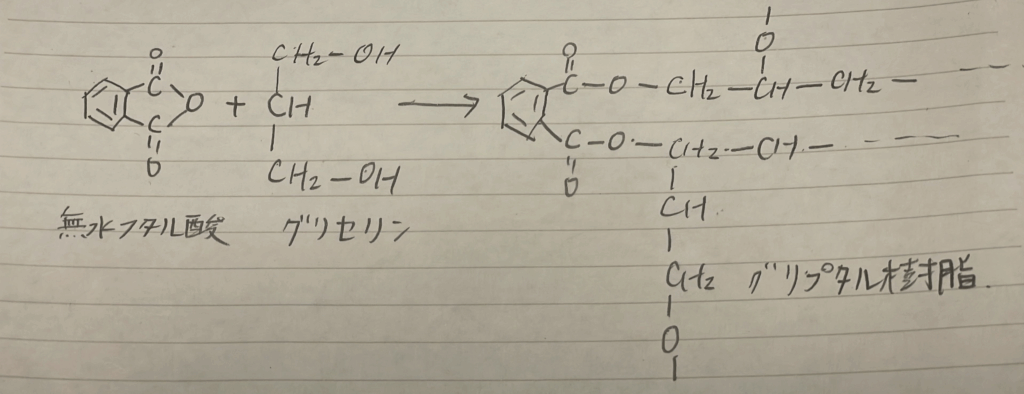 O
O CH₂–OH O
C O + CH → C–O–CH₂–CH–CH₂–
C C–O–CH₂–CH–
O CH₂–OH O
CH
無水フタル酸 グリセリン
CH₂ グリプタル樹脂
O